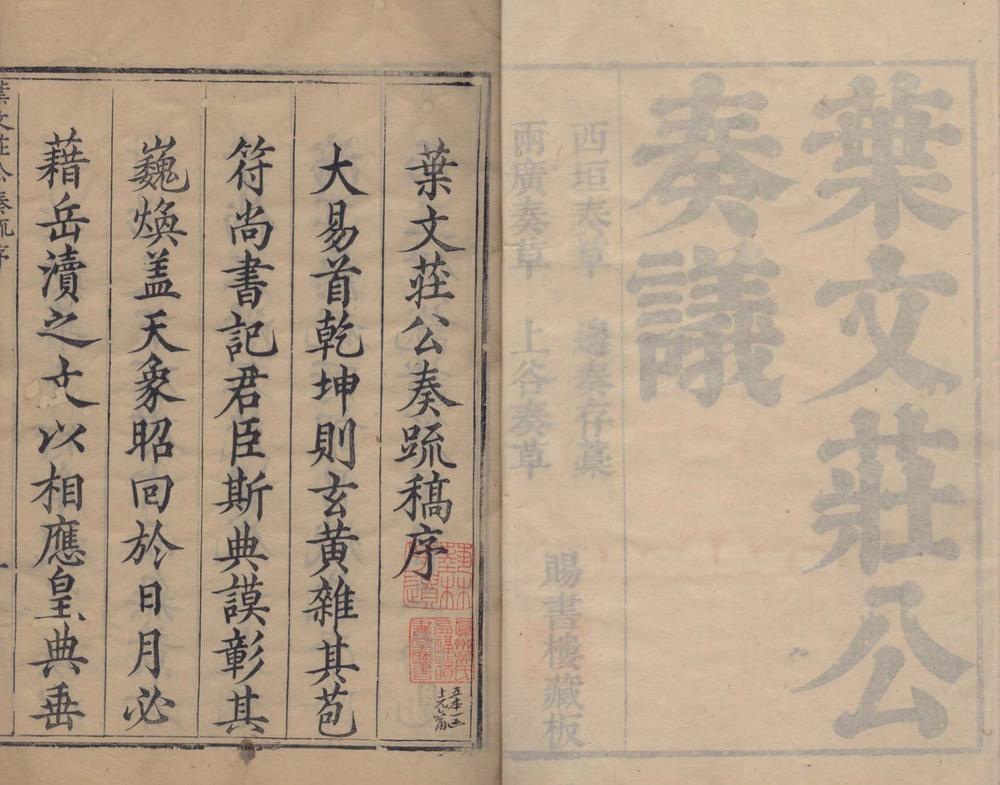 葉文莊公
奏議
西垣奏草 邊奏存藁
兩廣奏草 上谷奏草
賜書樓藏板
葉文莊公奏疏稿序
大易首乾坤則玄黃雜其苞
符尚書記君臣斯典謨彰其
巍煥盖天象昭回於日月必
藉岳瀆之文以相應皇典垂
葉文莊公奏疏序